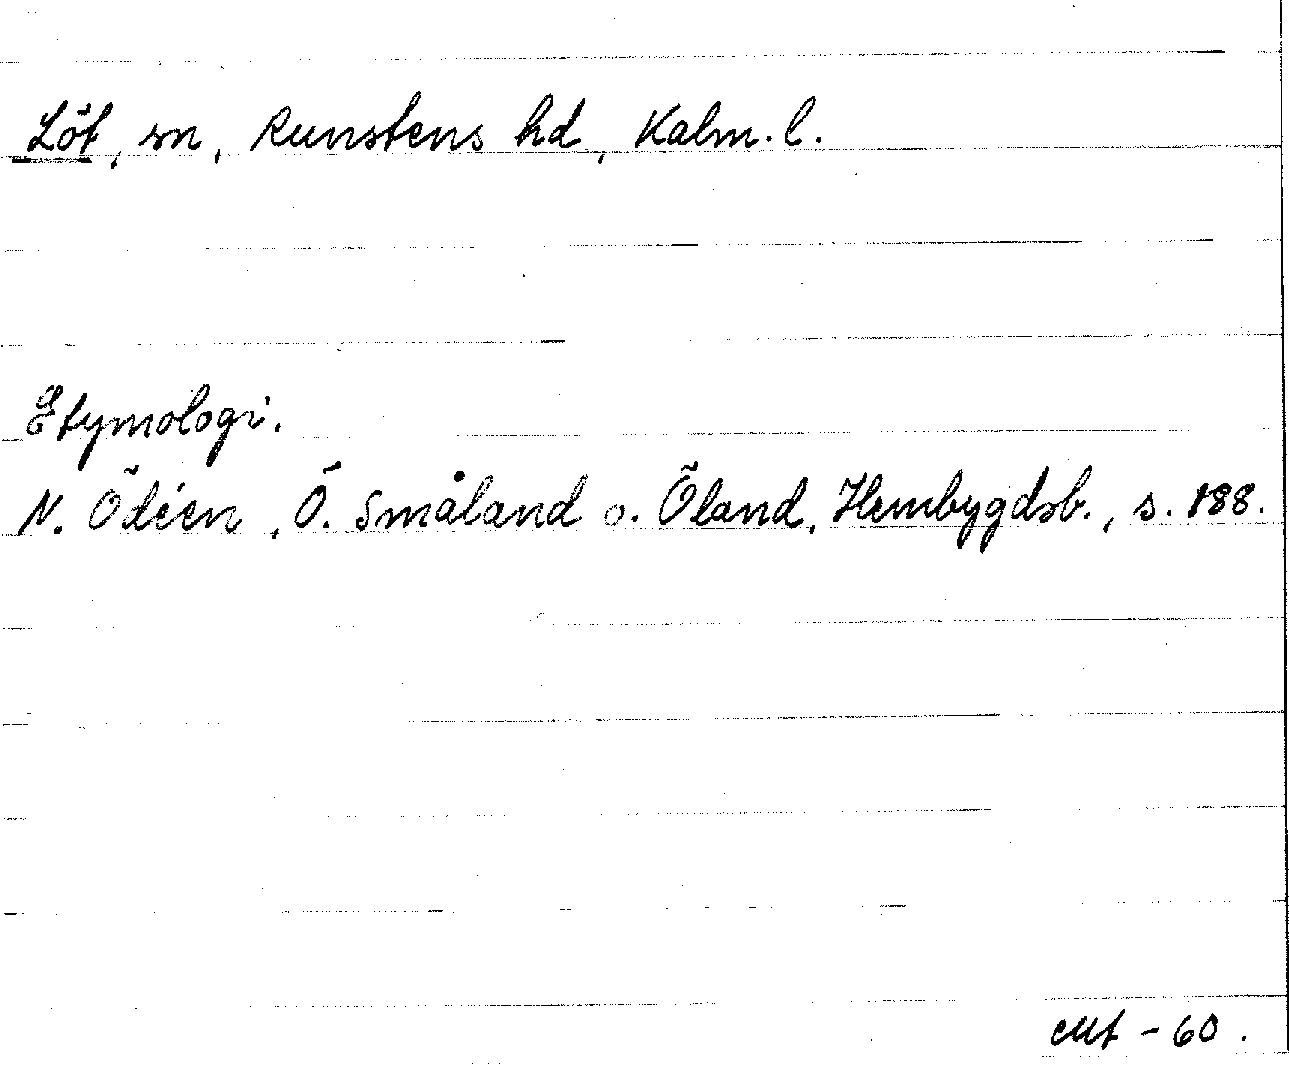 Löt, sn, Runstens hd, Kalm. l.
Etymologi.
N. Ödéen, Ö. Småland o. Öland, Hembygdsb., s. 188.
- 60.